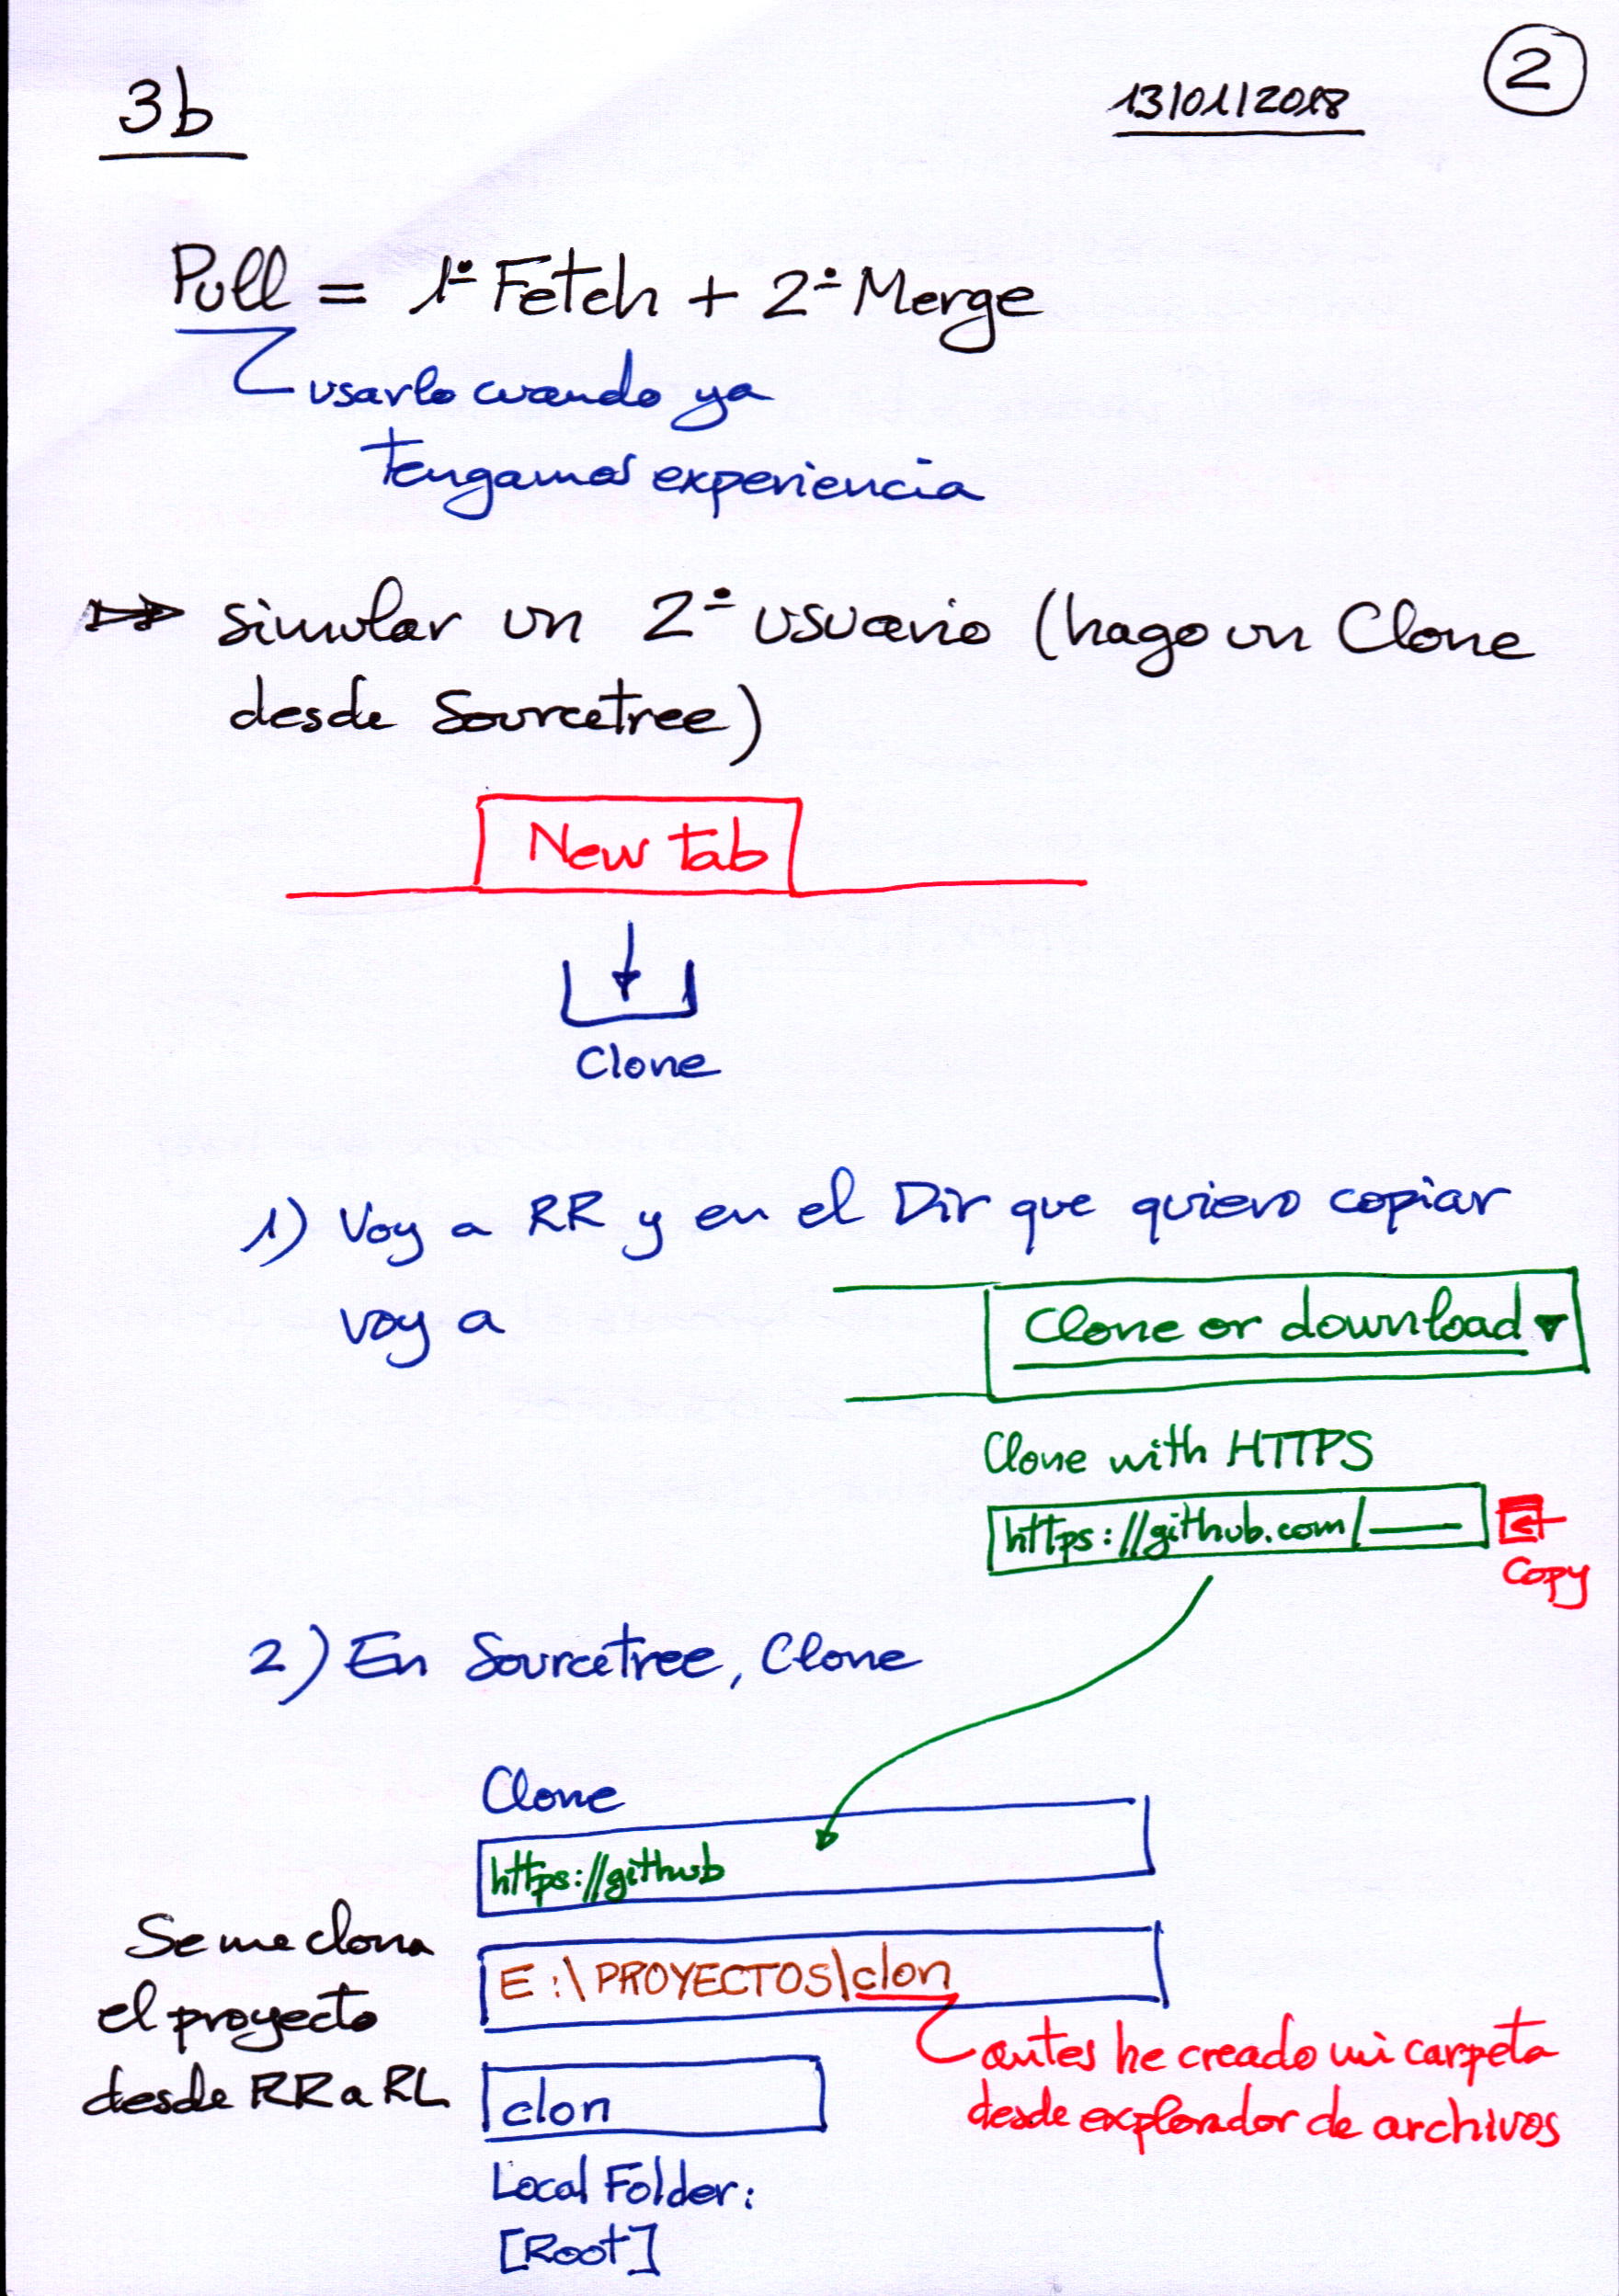 3b
13/01/2018
2
Pull = 1º Fetch + 2º Merge
usarlo cuando ya
tengamos experiencia
simular un 2º usuario (hago un Clone
desde Sourcetree)
New tab
Clone
1) Voy a RR y en el Dir que quiero copiar
voy a
Clone or download ▾
Clone with HTTPS
https://github.com/
Copy
2) En Sourcetree, Clone
Clone
https://github
Se me clona
el proyecto
desde RR a RL
E:\PROYECTOS\clon
antes he creado mi carpeta
desde explorador de archivos
clon
Local Folder:
[Root]